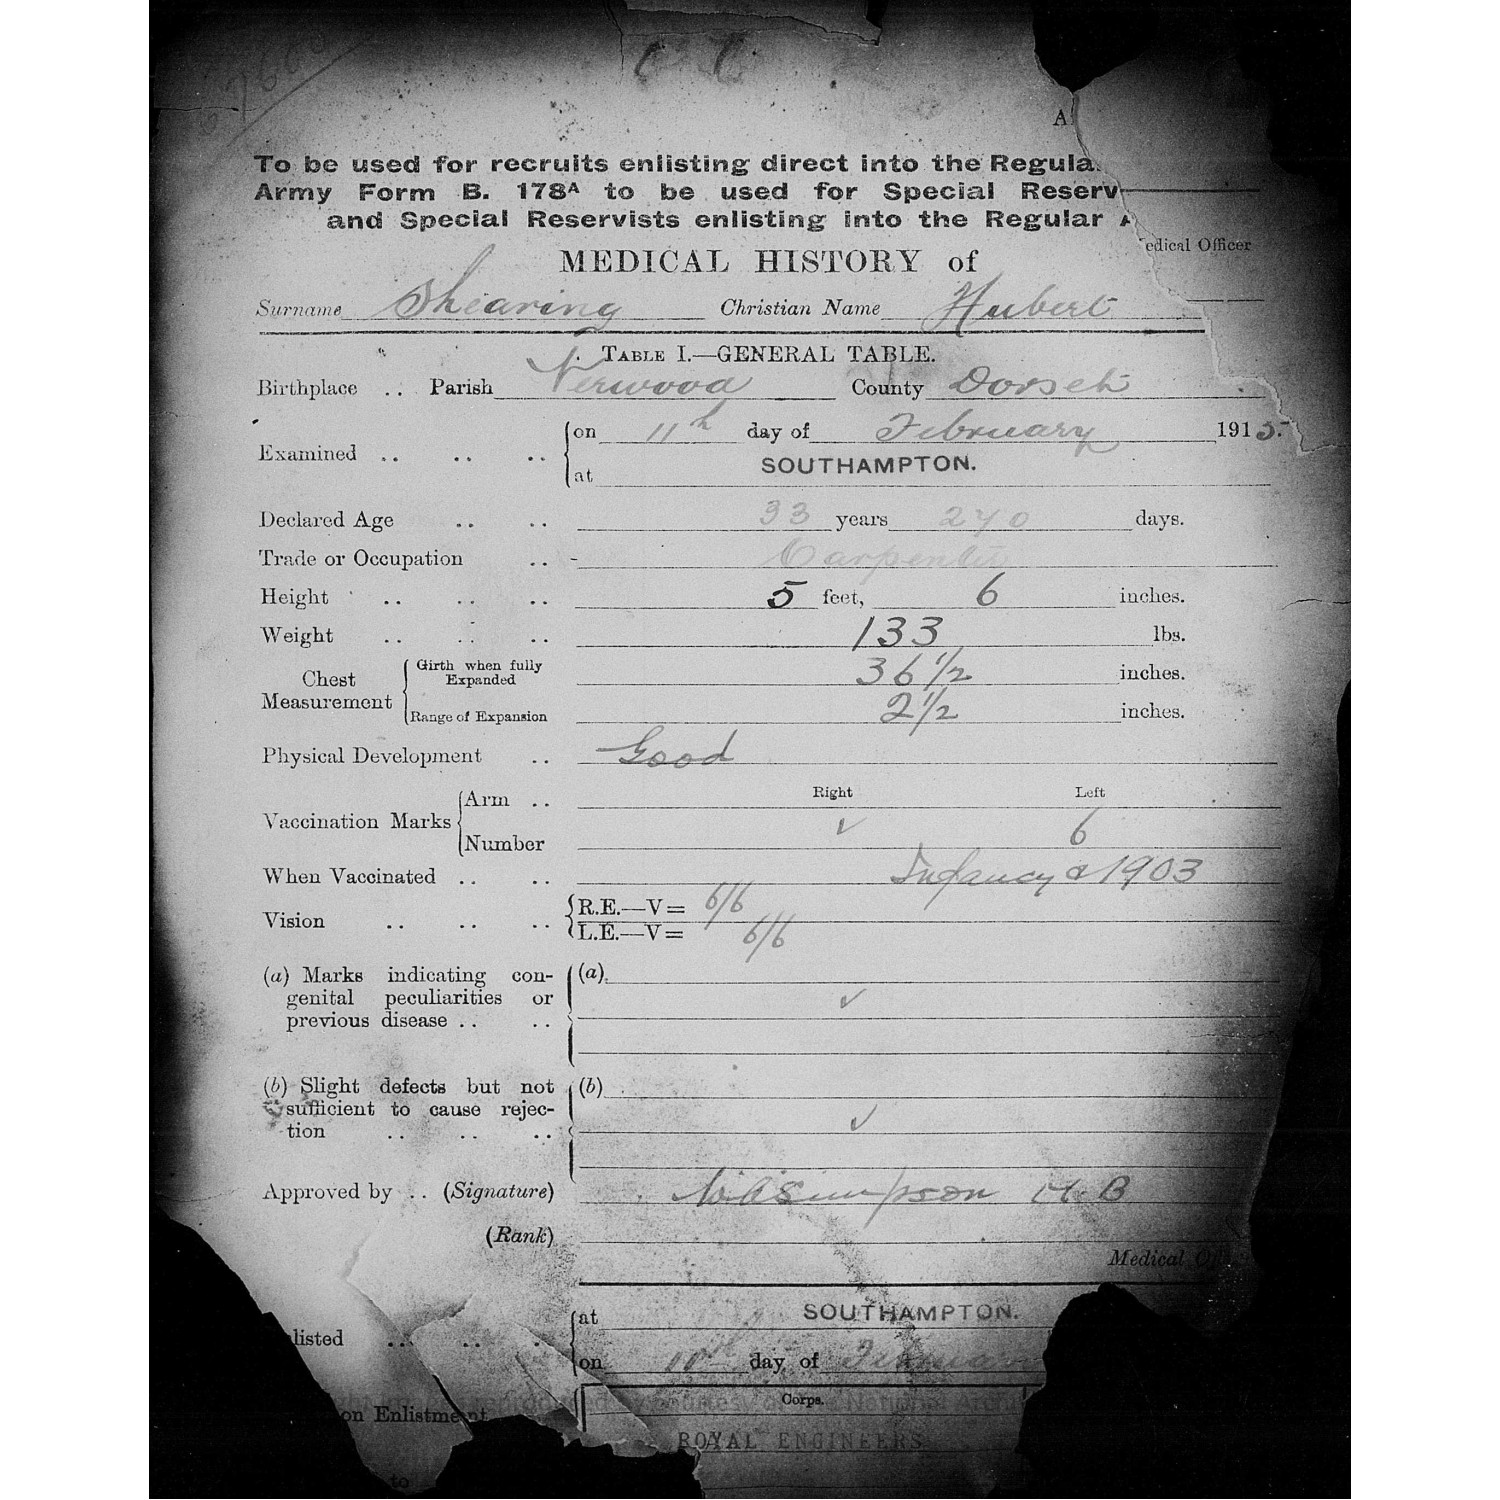 A
To be used for recruits enlisting direct into the Regula
Army Form B. 178A to be used for Special Reserv
and Special Reservists enlisting into the Regular A
edical Officer
MEDICAL HISTORY of
Surname Shearing Christian Name Hubert
TABLE I.—GENERAL TABLE.
Birthplace .. Parish Verwood County Dorset
Examined .. .. .. on 11th day of February 1915.
at SOUTHAMPTON.
Declared Age .. .. 33 years 240 days.
Trade or Occupation .. Carpenter
Height .. .. .. 5 feet, 6 inches.
Weight .. .. .. 133 lbs.
Chest Measurement Girth when fully Expanded 36 1/2 inches.
Range of Expansion 2 1/2 inches.
Physical Development .. Good
Right Left
Vaccination Marks Arm ..
Number ✓ 6
When Vaccinated .. .. Infancy & 1903
Vision .. .. .. R.E.—V= 6/6
L.E.—V= 6/6
(a) Marks indicating con- (a)
genital peculiarities or ✓
previous disease .. ..
(b) Slight defects but not (b)
sufficient to cause rejec- ✓
tion .. .. ..
Approved by .. (Signature) Simpson M.B
(Rank)
Medical Off
listed .. .. .. at SOUTHAMPTON.
on day of Februar
on Enlistment Corps.
ROYAL ENGINEERS
to